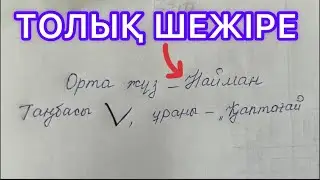 ТОЛЫҚ ШЕЖІРЕ
Орта жүз – Найман
Таңбасы V, ұраны – „Қаптағай